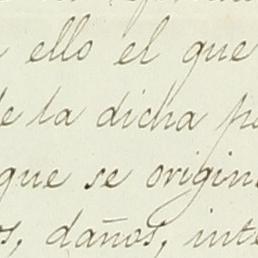 ello el que
de la dicha
que se origin
os, daños, inte